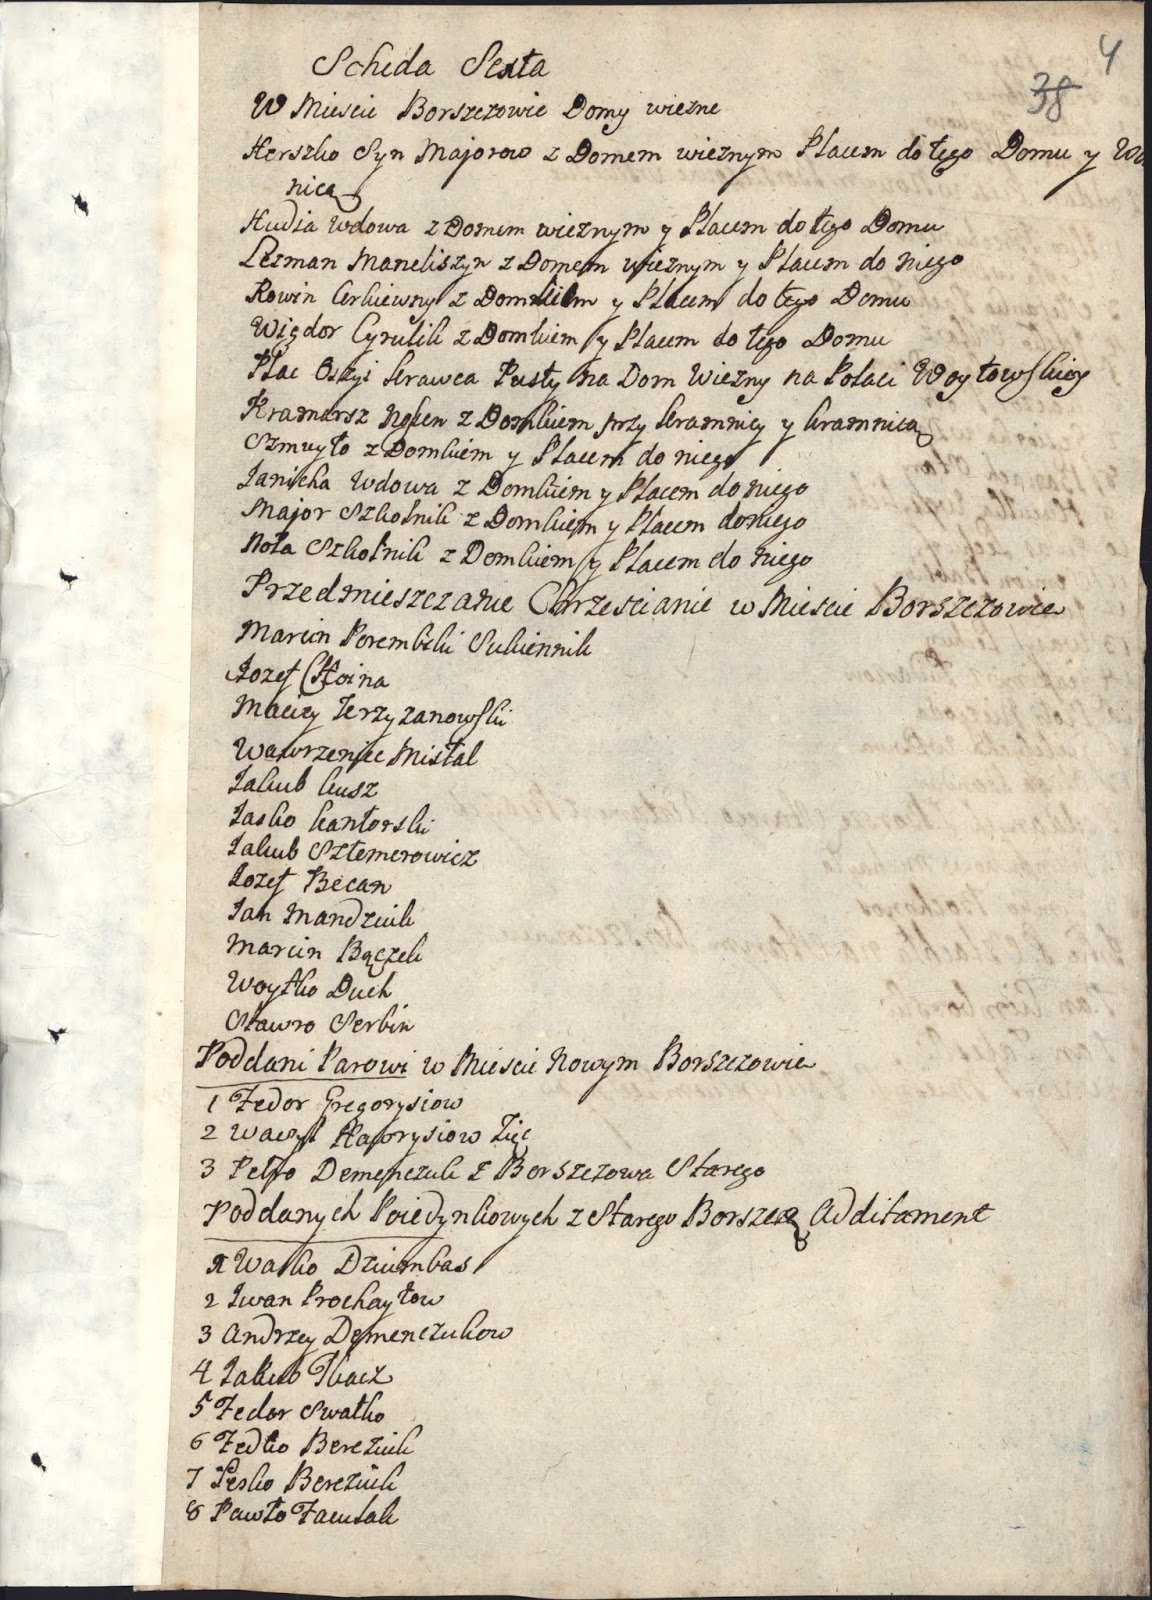 4
38
Scheda Sexta
W Miescie Borszczowie Domy wiezne
Herszko Syn Majorow z Domem wieznym Placem do tego Domu y
nicą
Hudia Wdowa z Domem wieznym y Placem do tego Domu
Lezman Maneliszyn z Domem wieznym y Placem do niego
Rowin Cerkiewny z Domkiem y Placem do tego Domu
Wigdor Cyrulik z Domkiem y Placem do tego Domu
Plac Oszyi krawca Pusty na Dom Wiezny na Polaci Woytowskiey
Kramarsz z Domkiem przy kramnicy y kramnicą
Szmuyło z Domkiem y Placem do niego
Janicha Wdowa z Domkiem y Placem do niego
Major Szkolnik z Domkiem y Placem do niego
Nota Szkolnik z Domkiem y Placem do niego
Przedmieszczanie Chrzescianie w Miescie Borszczowie
Marcin Porembski Sukiennik
Jozef Choina
Maciey Jerzyzanowski
Wawrzeniec Mistal
Jakub kusz
Jasko kantorski
Jakub Sztemerowicz
Jozef Becan
Jan Mandziuk
Marcin Bączek
Woytko Duch
Stawro Serbin
Poddani Parowi w Miescie Nowym Borszczowie
1 Fedor Gregorysiow
2 Wasyl Hawrysiow Zięc
3 Petro Demenczuk z Borszczowa Starego
Poddanych Poiedynkowych z Starego Additament
1 Wasko Dziumbas
2 Iwan Prochaytow
3 Andrzey Demenczukow
4 Jakub Tkacz
5 Fedor Swatko
6 Fedko Bereziuk
7 Lesko Bereziuk
8 Pawło